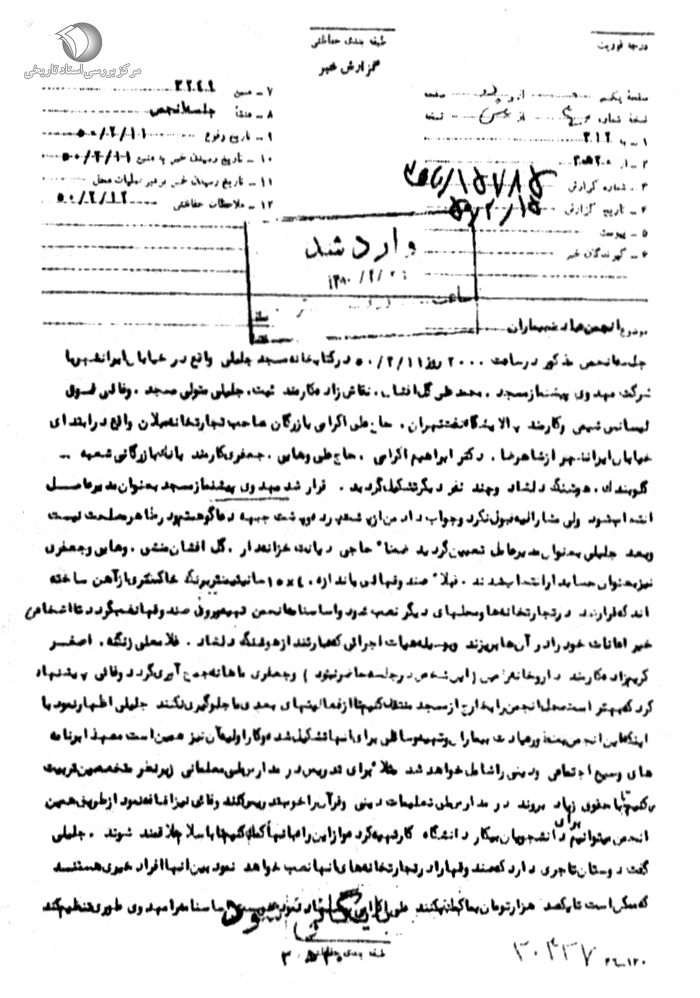 مرکز بررسی اسناد تاریخی
طبقه بندی حفاظتی
گزارش خبر
درجه فوریت
صفحه یکم از صفحه
نسخه شماره از نسخه
۱ – به ۳۱۲
۲ – از ۲۰ه۲۰
۳ – شماره گزارش
۴ – تاریخ گزارش
۵ – پیوست
۶ – گیرندگان خبر
۷ – منبع ۳۲۴۹
۸ – منشأ جلسه انجمن
۹ – تاریخ وقوع ۵۰/۲/۱۱
۱۰ – تاریخ رسیدن خبر به منبع ۵۰/۲/۱۱
۱۱ – تاریخ رسیدن خبر برهبر عملیات محل
۱۲ – ملاحظات حفاظتی ۵۰/۲/۱۲
وارد شد
ساعت
موضوع انجمن عیادت بیماران
جلسه انجمن مذکور در ساعت ۲۰۰۰ روز ۵۰/۲/۱۱ در کتابخانه مسجد جلیلی واقع در خیابان ایرانشهر با
شرکت مهدوی پیشنماز مسجد . محمدعلی گل افشان . نقاش زاده کارمند ثبت . جلیلی متولی مسجد . وفائی فوق
لیسانس شیمی و کارمند پالایشگاه نفت تهران . حاج علی اکرامی بازرگان صاحب تجارتخانه میلان واقع در ابتدای
خیابان ایرانشهر از شاهرضا . دکتر ابراهیم اکرامی . حاج علی وهابی . جعفری کارمند بانک بازرگانی شعبه –
گلوبندک . هوشنگ دلشاد و چند نفر دیگر تشکیل گردید . قرار شد مهدوی پیشنماز مسجد بعنوان مدیر عامل
انتخاب شود ولی مشارالیه قبول نکرد و جواب داد من از پشت پرده و پشت جبهه دعاگو هستم و رضا هر مصلحت نیست
وبعد جلیلی بعنوان مدیر عامل تعیین گردید ضمناً حاجی دیانت خزانه دار . گل افشان منشی . وهابی و جعفری
نیز بعنوان حسابدار انتخاب شدند . قبلاً صندوقهائی باندازه ۴۰×۱۵ سانتیمتر برنگ خاکستری از آهن ساخته
اند که قرار شد در تجارتخانه ها و محلهای دیگر نصب شود و اساسنامه انجمن تهیه و روی صندوقها نصب گردد تا اشخاص
خیر اعانات خود را در آن ها بریزند وبوسیله هیات اجرائی که عبارتند از هوشنگ دلشاد . غلامعلی زنگنه . اصغر
کریم زاده کارمند داروخانه (این شخص در جلسه حاضر نبود) و جعفری ماهانه جمع آوری گردد وفائی پیشنهاد
کرد که بهتر است محل انجمن را بخارج از مسجد منتقل کنیم تا از فعالیتهای بعدی ما جلوگیری نکنند جلیلی اظهار نمود با
اینکه این انجمن بمنظور عیادت بیماران و تهیه وسائلی برای آنها تشکیل شده و کار اولیه آن نیز همین است معهذا برنامه
های وسیع اجتماعی و دینی را شامل خواهد شد مثلاً برای تدریس در مدارس ملی معلمانی زیرنظر متخصصین تربیت
میکنیم تا با حقوق زیاد بروند در مدارس ملی تعلیمات دینی و قرآن را خوب تدریس کنند وفائی نیز اضافه نمود از طریق همین
انجمن میتوانیم برای دانشجویان بیکار دانشگاه کار تهیه کرده و از این راه بآنها کمک کنیم تا باسلام علاقمند شوند . جلیلی
گفت دوستان تاجری دارد که صندوقها را در تجارتخانه های آنها نصب خواهد نمود بین آنها افراد خیری هستند
که ممکن است تا یکصد هزار تومان بما کمک کنند علی اکرامی پیشنهاد نمود اساسنامه را مهدوی طوری تنظیم کند
بایگانی شود
طبقه بندی حفاظتی
۳۰۴۳۷
۲۶–۱۲۰